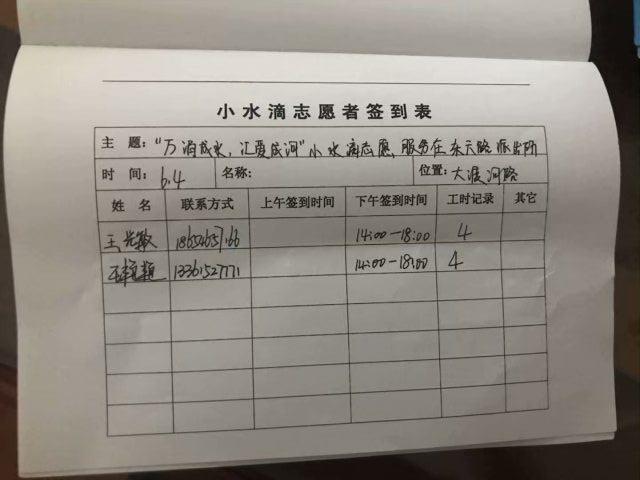 小水滴志愿者签到表
主 题:“万滴成水,汇爱成河”小水滴志愿服务在东元路派出所
时 间:6.4 名称: 位置:大渡河路
姓 名 联系方式 上午签到时间 下午签到时间 工时记录 其它
王 14:00—18:00 4
13361527771 14:00—18:00 4